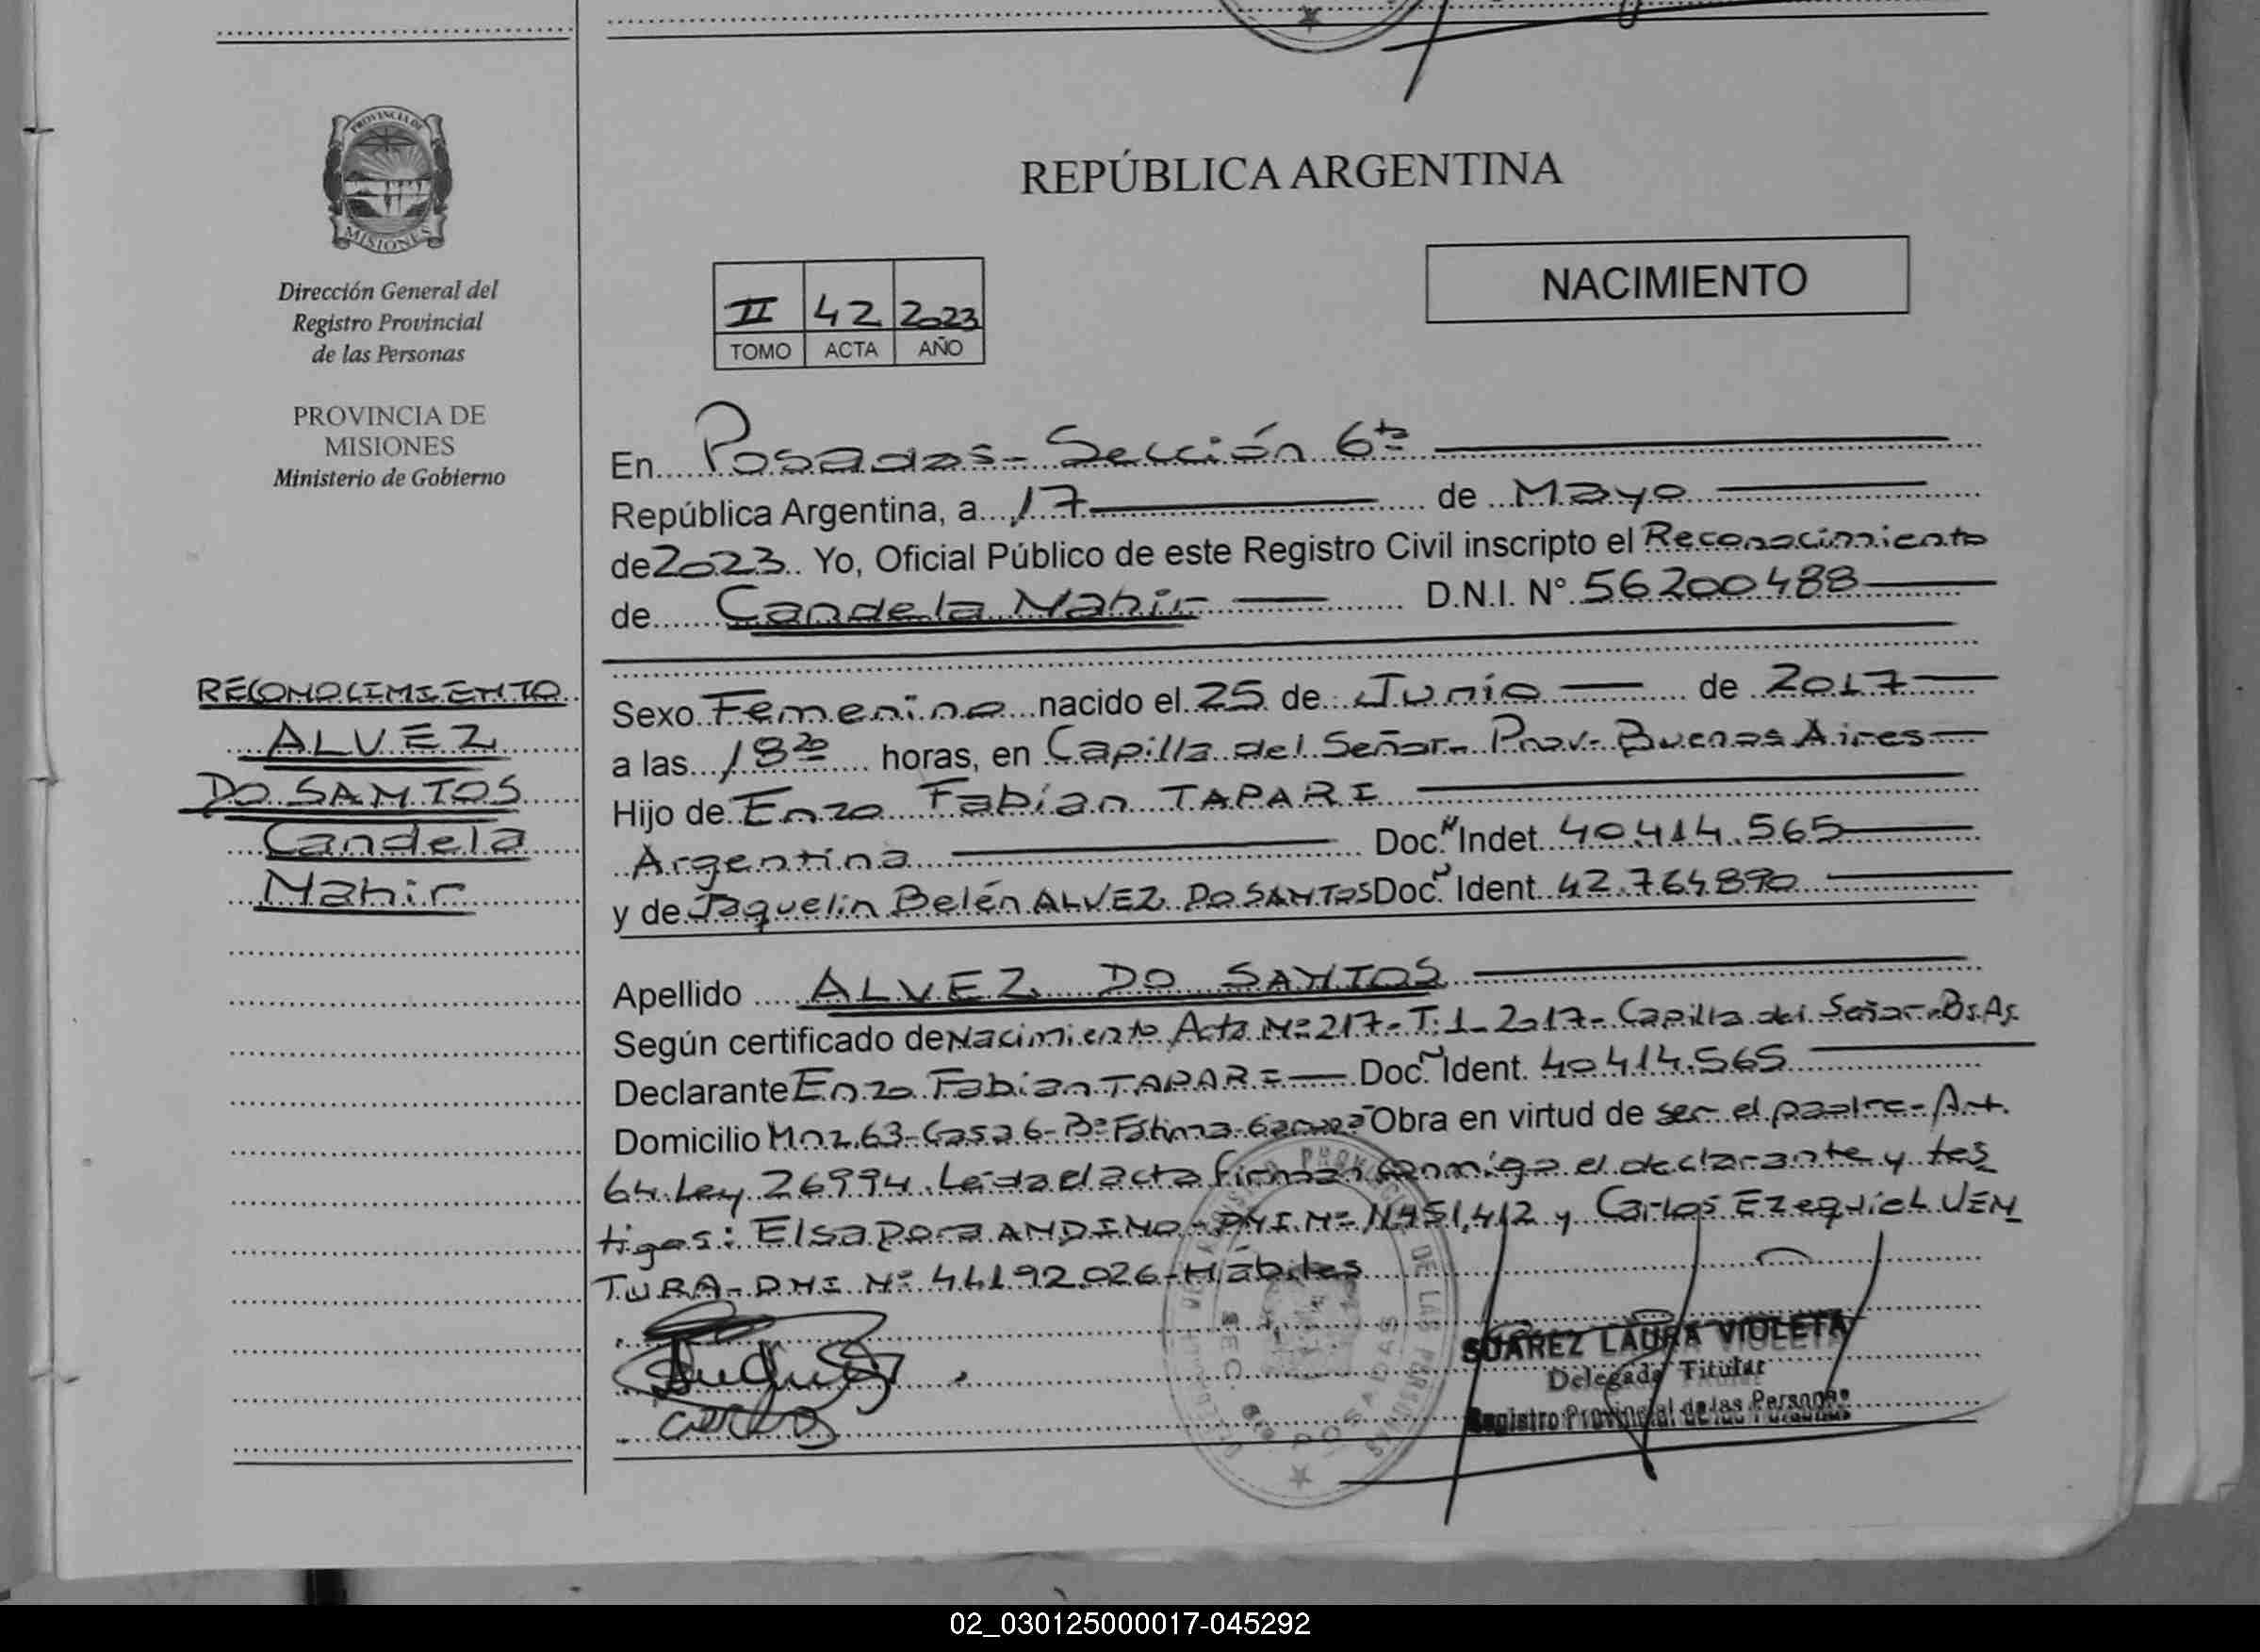 PROVINCIA DE
MISIONES
Dirección General del
Registro Provincial
de las Personas
PROVINCIA DE
MISIONES
Ministerio de Gobierno
RECONOCIMIENTO
ALVEZ
DO SANTOS
Candela
Nahir
REPÚBLICA ARGENTINA
NACIMIENTO
II 42 2023
TOMO ACTA AÑO
En Posadas - Sección 6ta
República Argentina, a 17 de Mayo
de 2023. Yo, Oficial Público de este Registro Civil inscripto el Reconocimiento
de Candela Nahir D.N.I. N° 56200488
Sexo Femenino nacido el 25 de Junio de 2017
a las 18 20 horas, en Capilla del Señor - Prov. Buenos Aires
Hijo de Enzo Fabian TAPARI
Argentina Doc. N Indet. 40.414.565
y de Jaquelin Belén ALVEZ DO SANTOS Doc. N Ident. 42.764.890
Apellido ALVEZ DO SANTOS
Según certificado de Nacimiento Acta N° 217 - T: 1 - 2017 - Capilla del Señor - Bs. As.
Declarante Enzo Fabian TAPARI Doc. N Ident. 40 414.565
Domicilio Mnz. 63 - Casa 6 - B° Fátima - Obra en virtud de ser el padre - Art.
64 Ley 26994. Leída el acta firman conmigo el declarante y tes
tigos: Elsa Dora ANDINO - DNI N° 11.451.412 y Carlos Ezequiel VEN
TURA - DNI N° 44192.026 - Hábiles
Carlos
PROVINCIA DE LAS PERSONAS
SEC. 6ta POSADAS
SUAREZ LAURA VIOLETA
Delegada Titular
Registro Provincial de las Personas
02_030125000017-045292